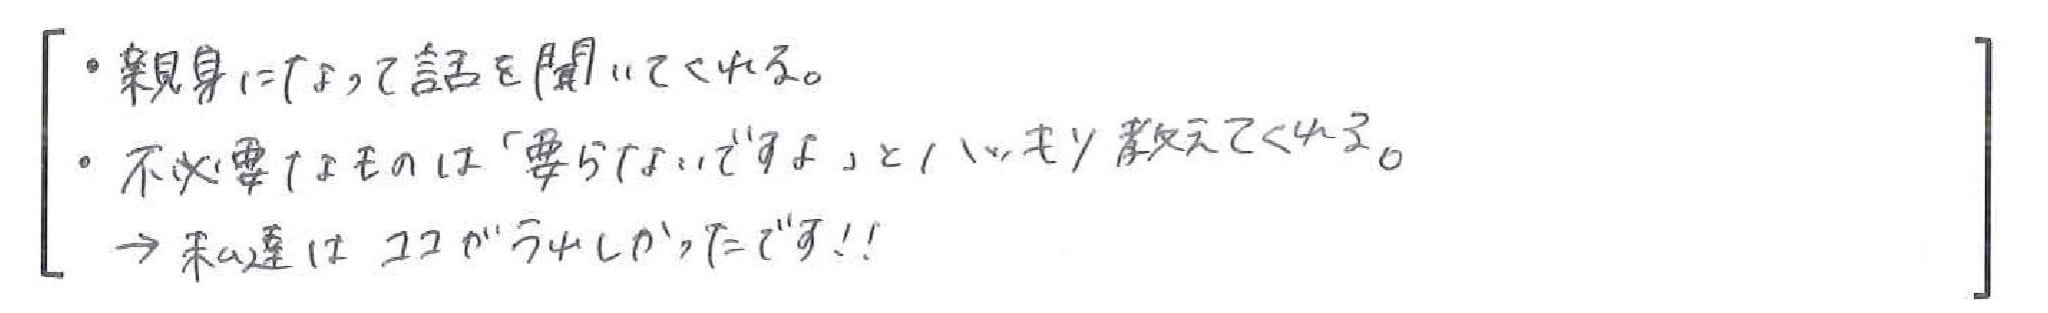 ・親身になって話を聞いてくれる。
・不必要なものは「要らないですよ」とハッキリ教えてくれる。
→私達はココがうれしかったです!!